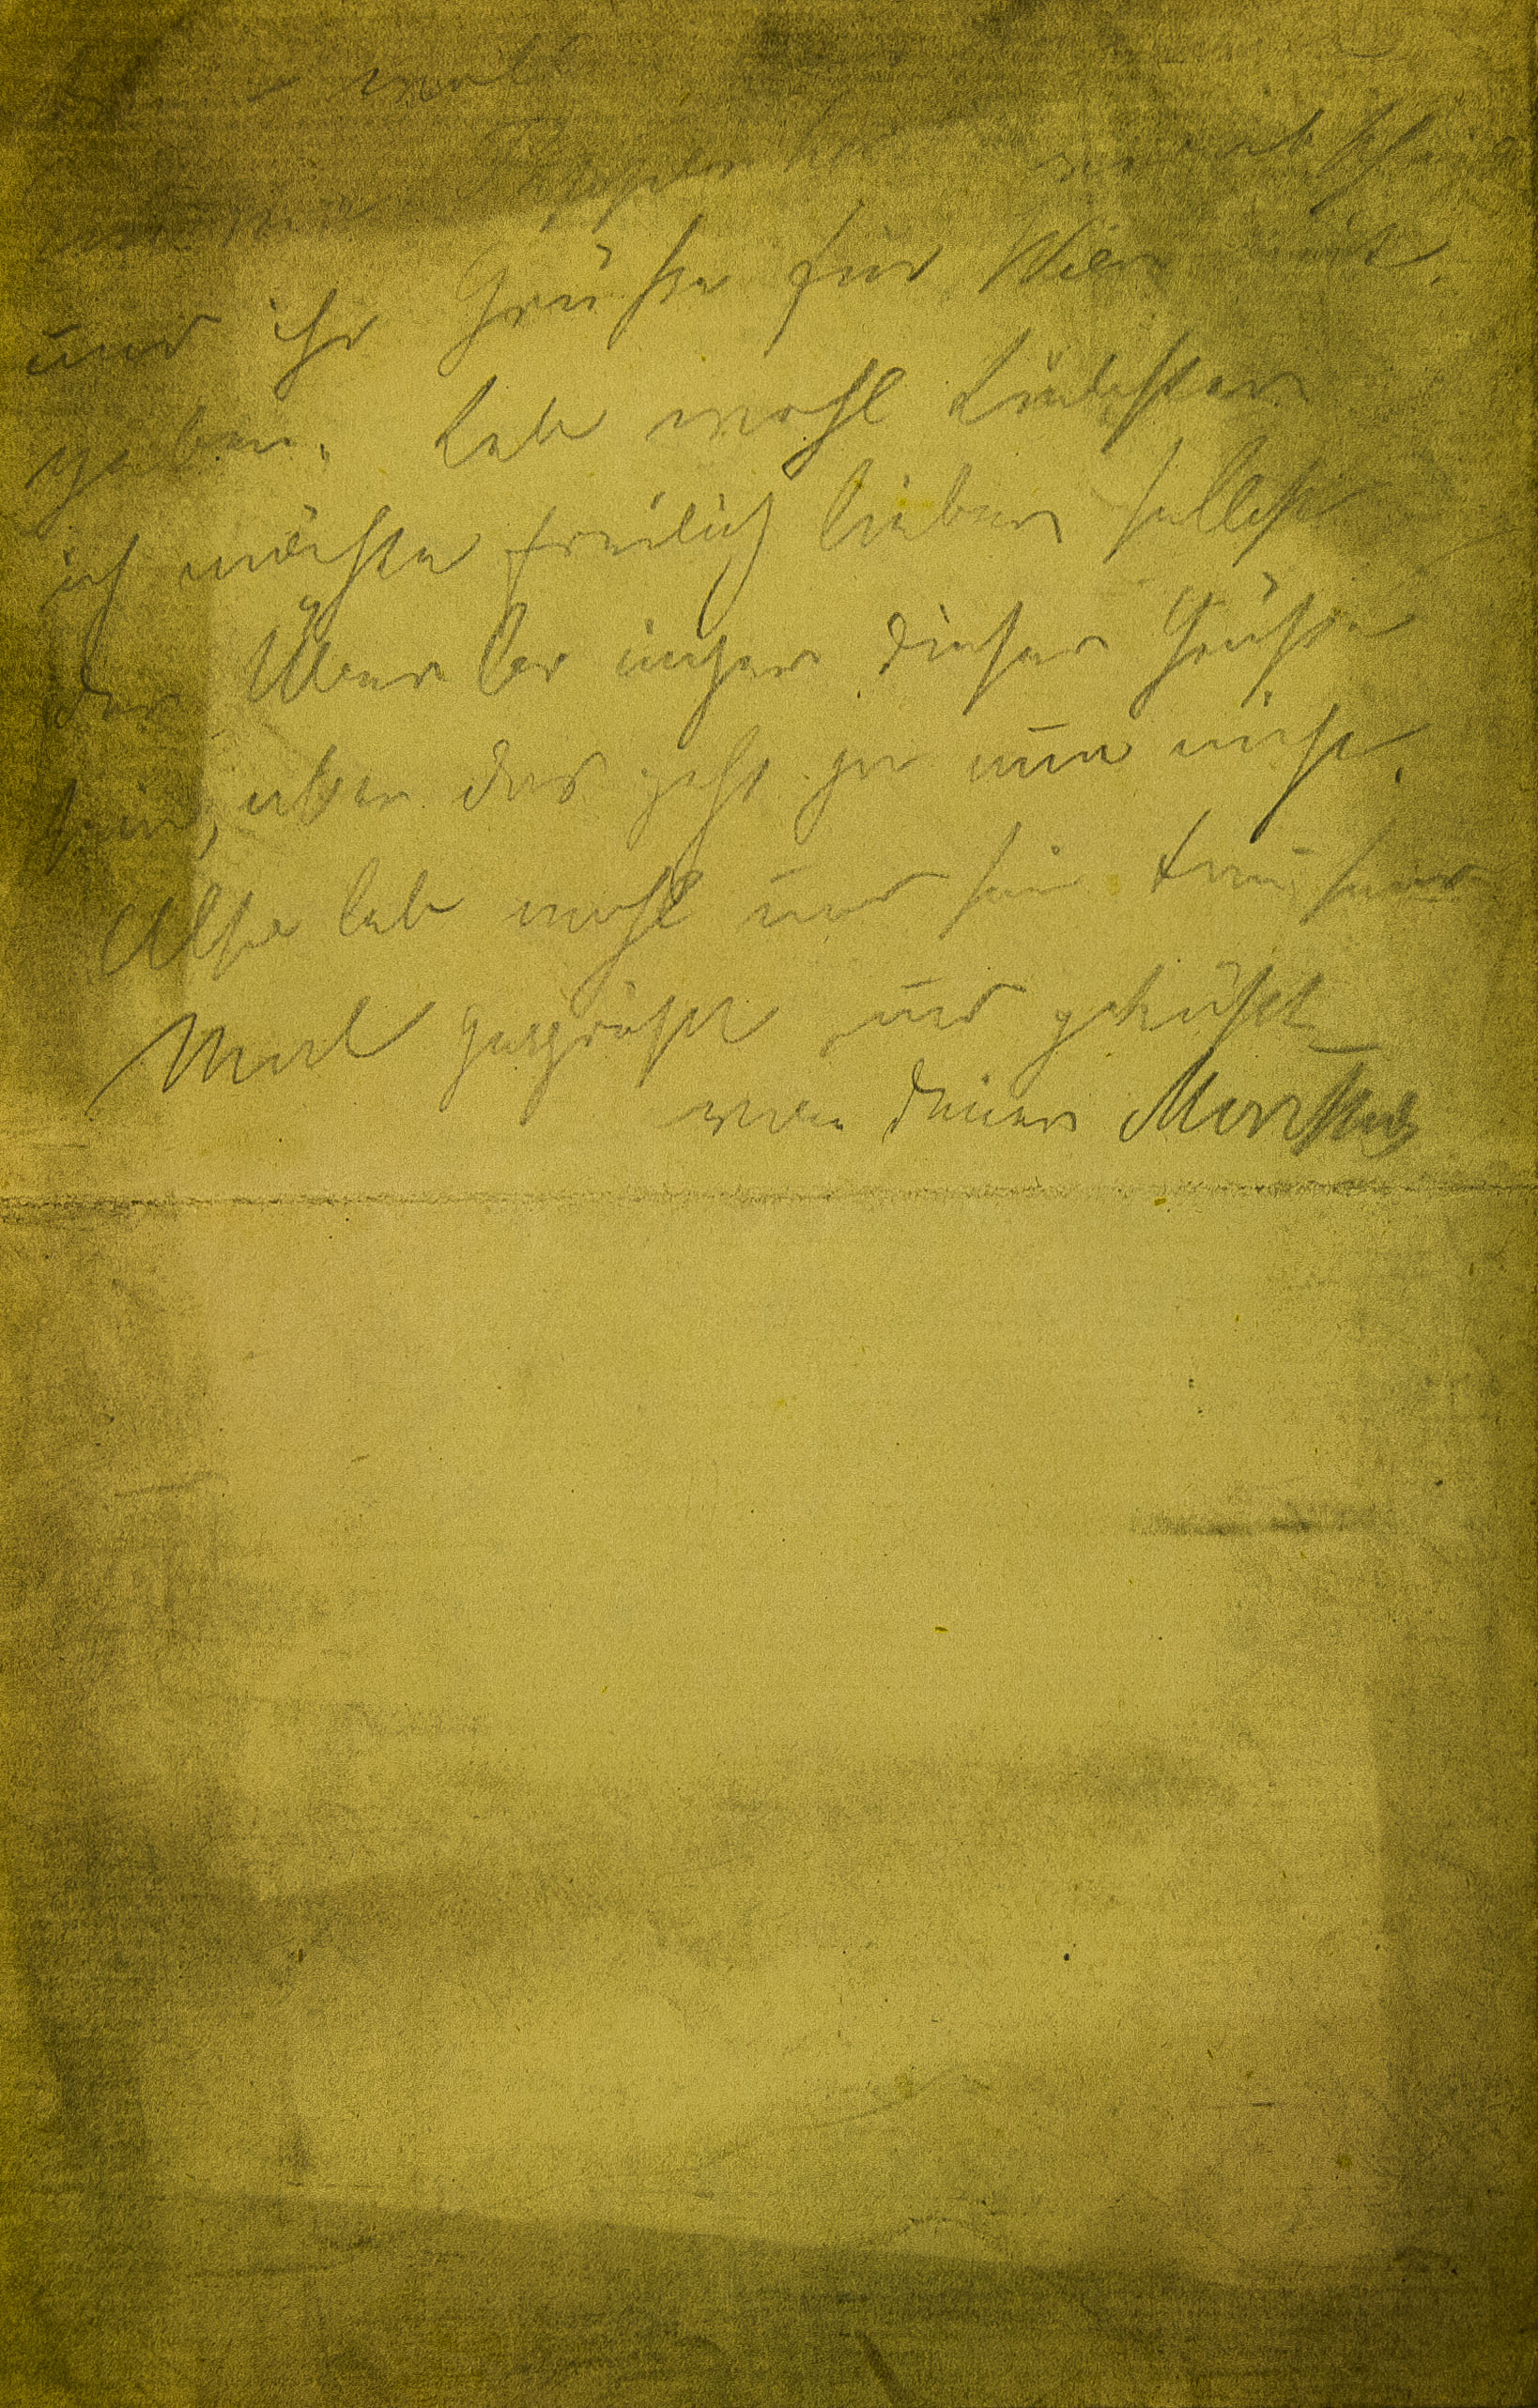 wohl
und ihr Grüße für Wien mit
geben. Leb wohl Liebster
ich möchte freilich lieber selbst
der Überbringer dieser Grüße
sein, aber das geht ja nun nicht.
Also leb wohl und sei tausend
Mal gegrüßt und geküßt
von deiner